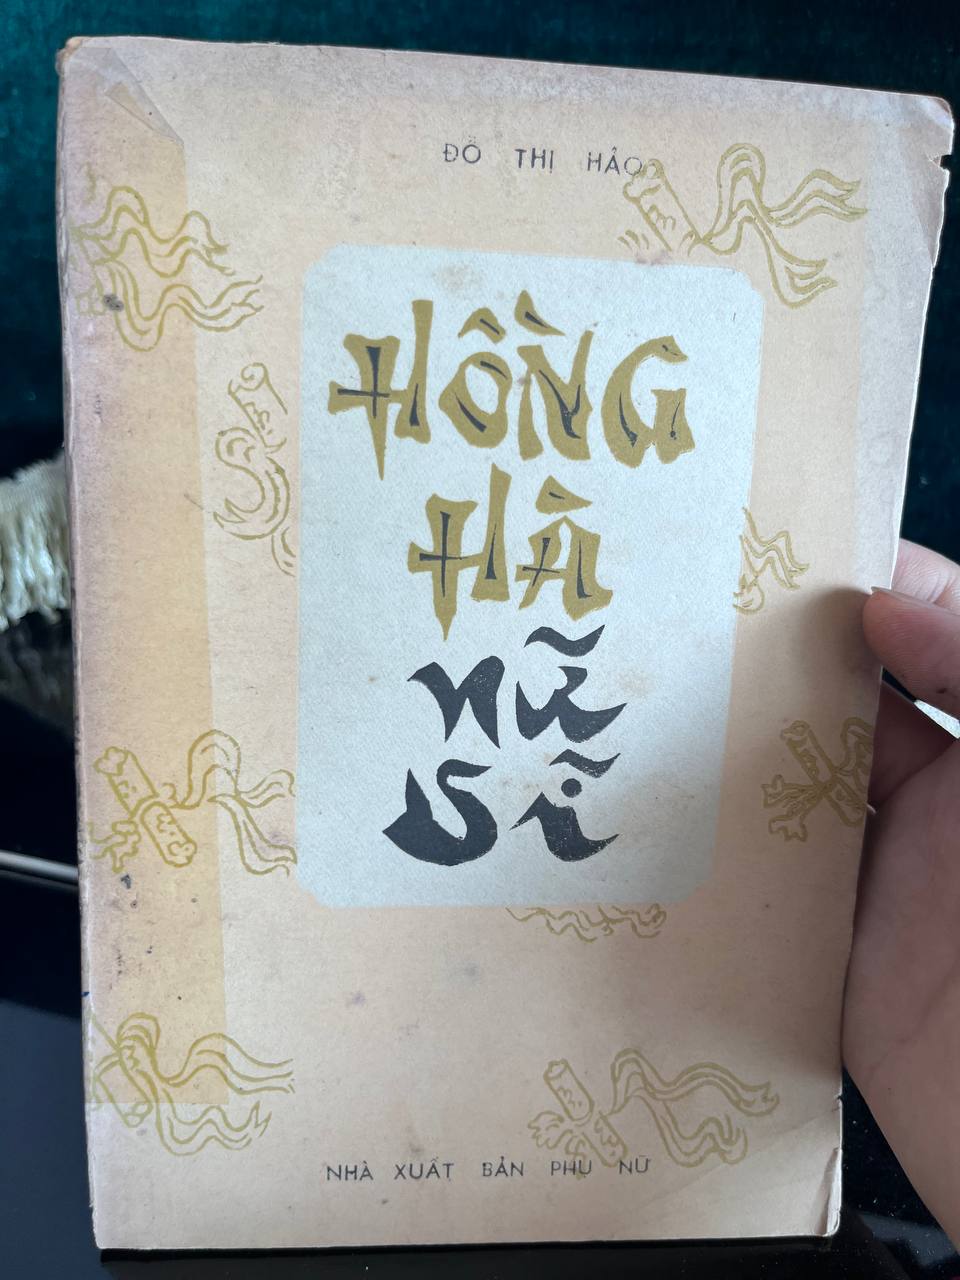 ĐỖ THỊ HẢO
HỒNG
HÀ
NỮ
SĨ
NHÀ XUẤT BẢN PHỤ NỮ